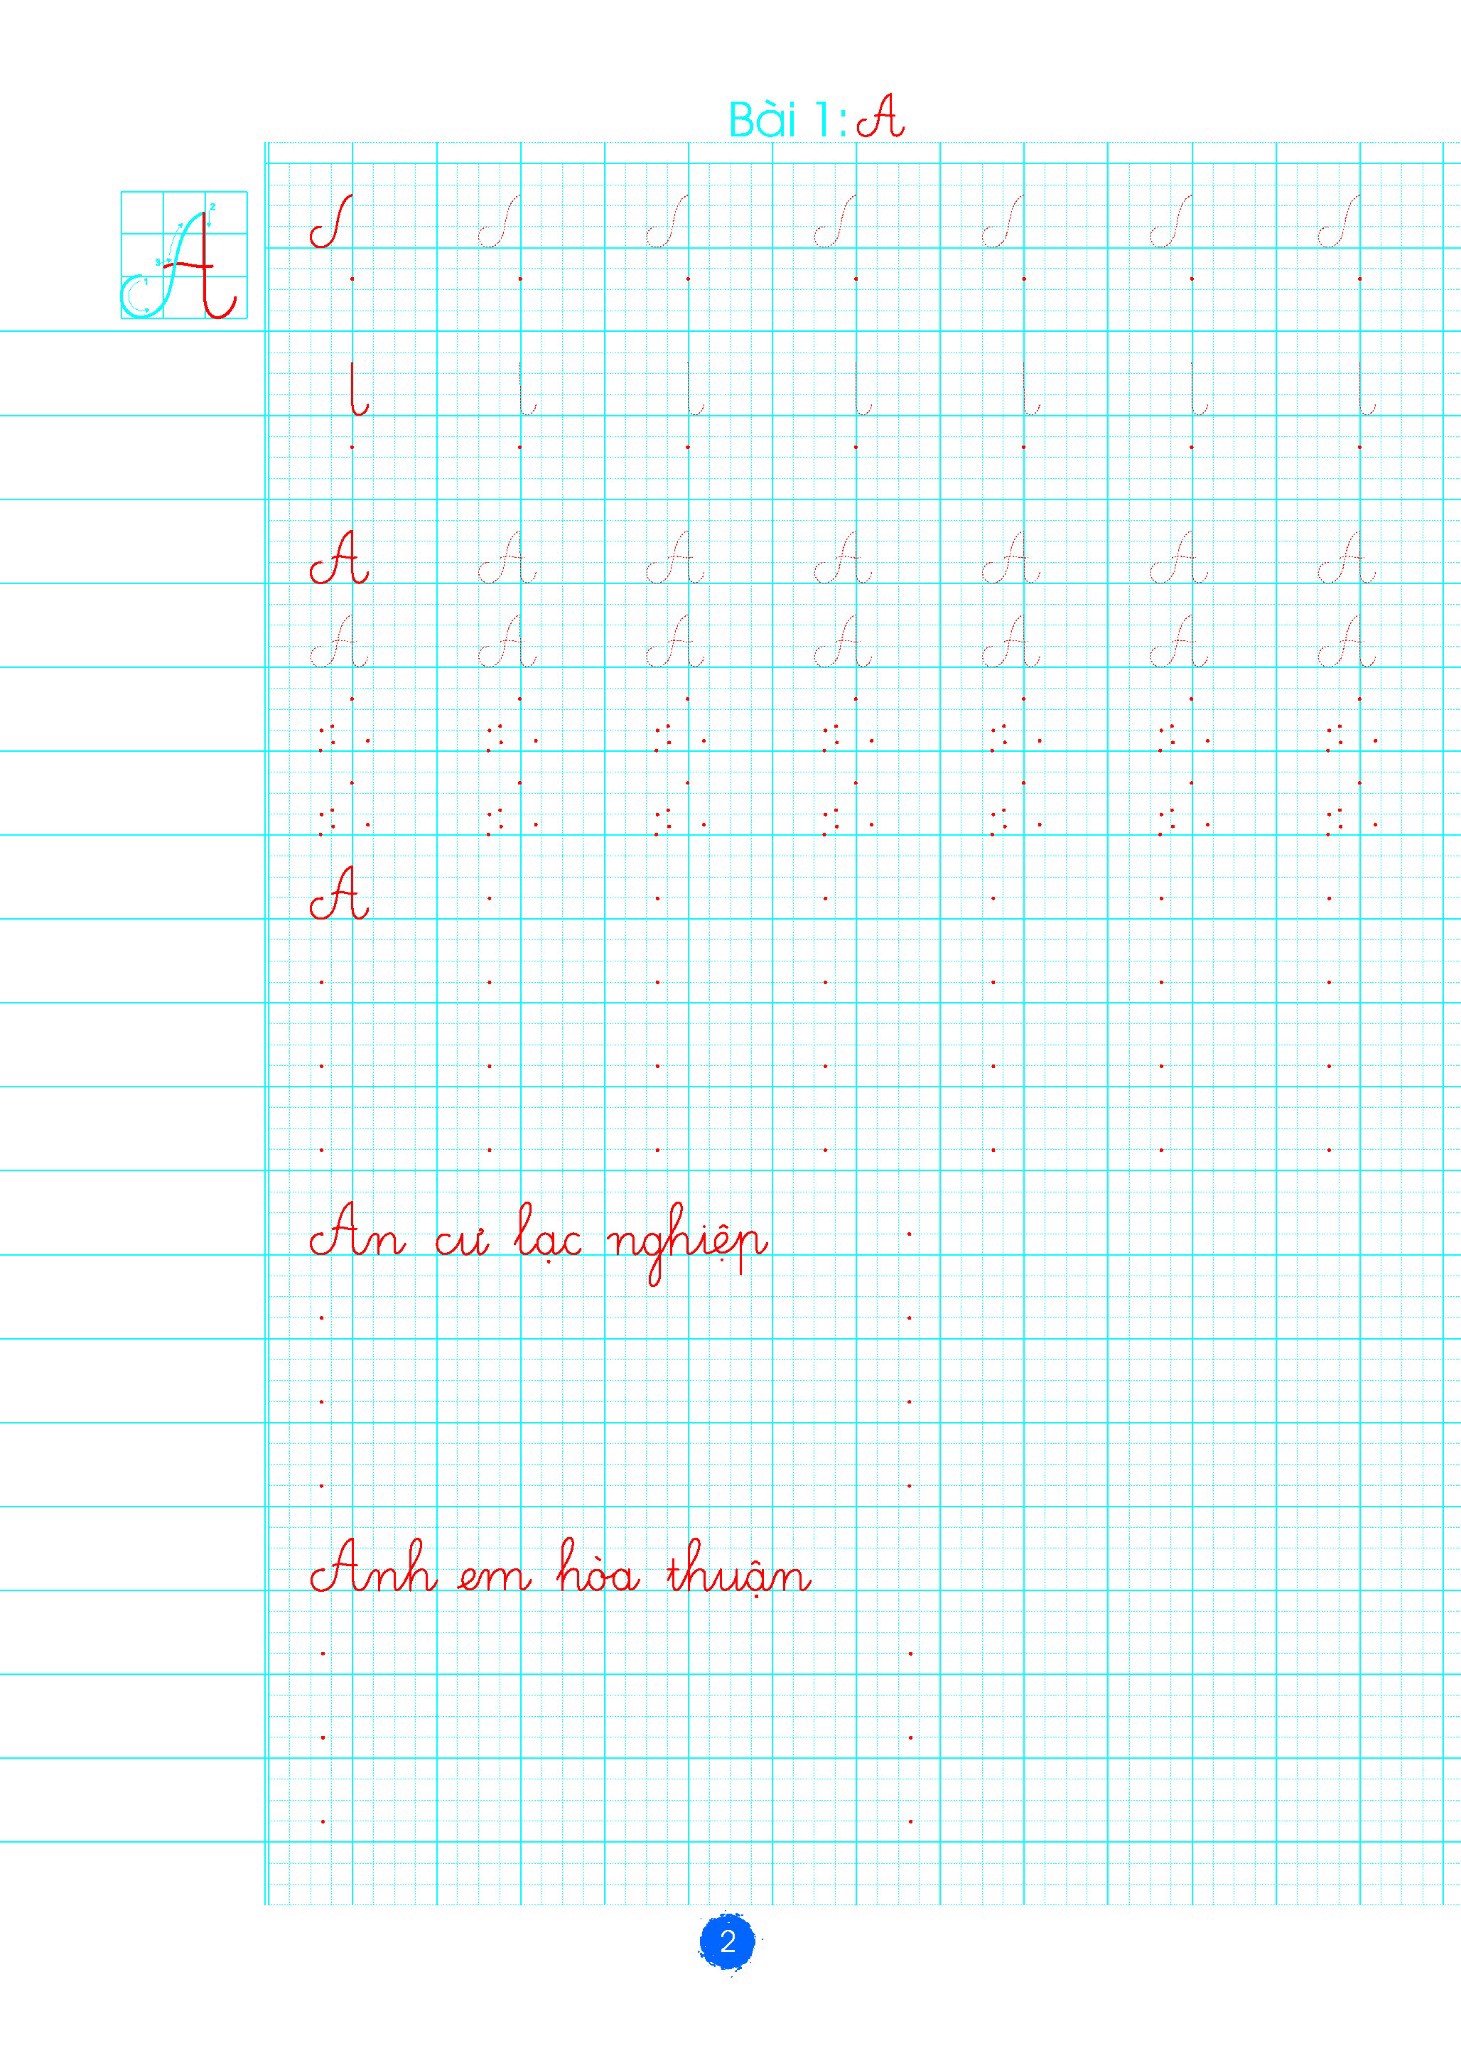 Bài 1: A
1 2 3
A A A A A A A
A A A A A A A
A
An cư lạc nghiệp
Anh em hòa thuận
2